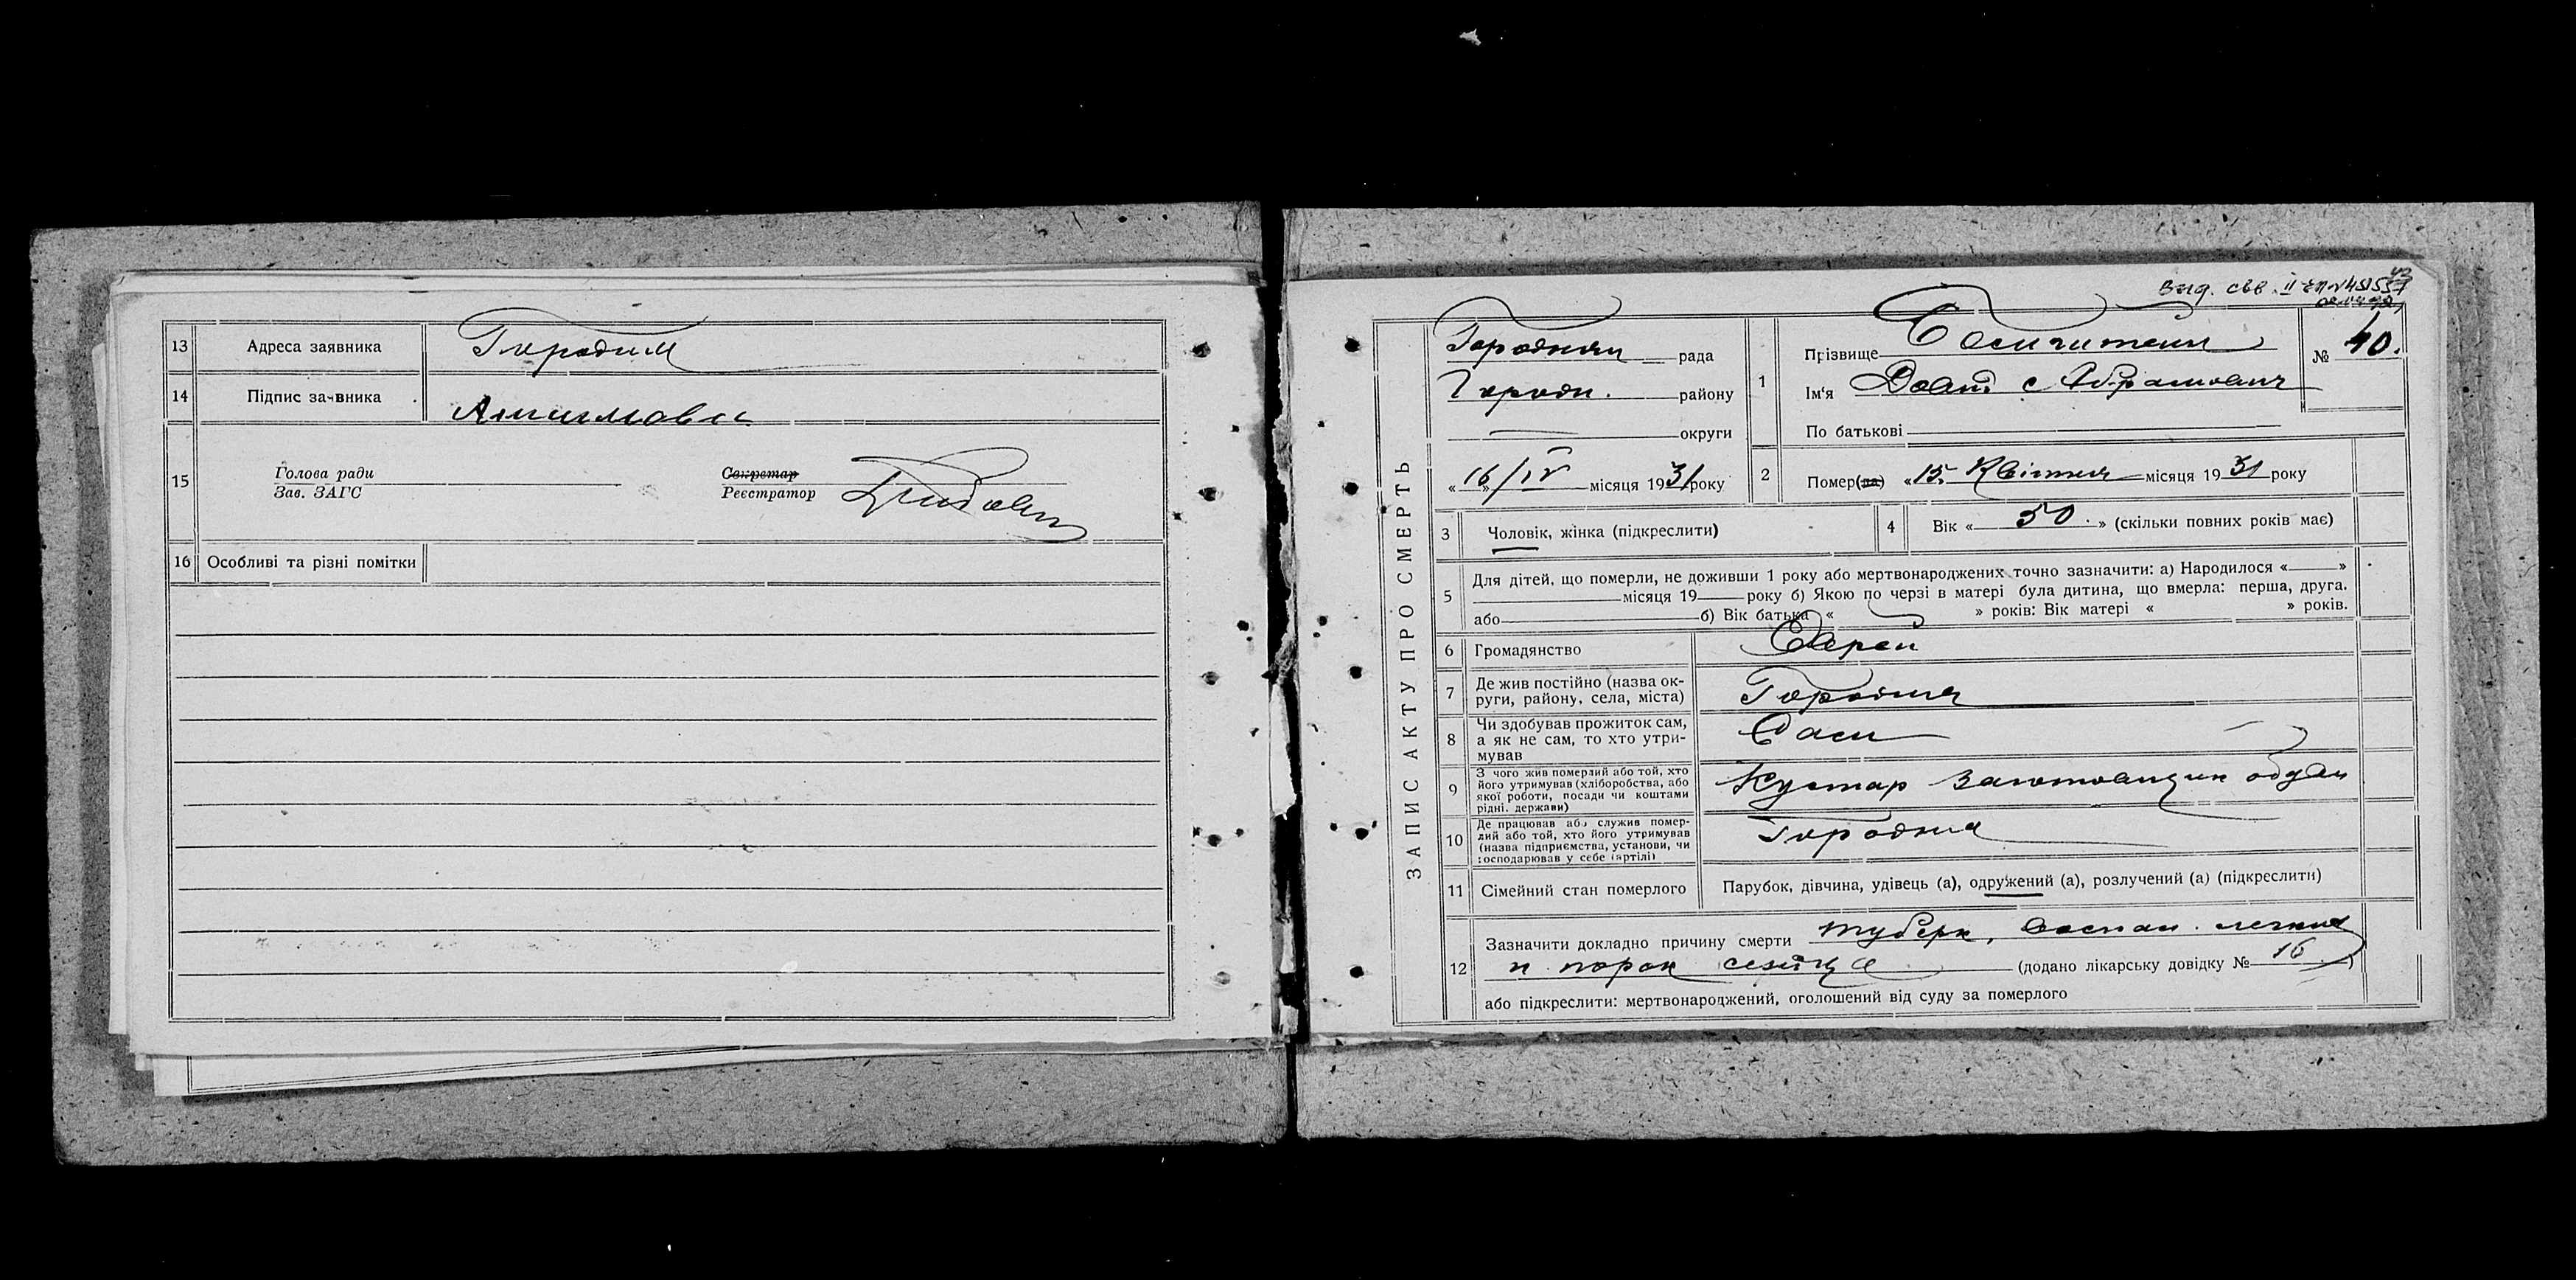 13 Адреса заявника Городня
14 Підпис заявника
15 Голова ради
Зав. ЗАГС
Секретар
Реєстратор
16 Особливі та різні помітки
ЗАПИС АКТУ ПРО СМЕРТЬ
Выд. свв. II
Городнян рада
Городн. району
округи
«16/IV» місяця 1931 року
1 Прізвище
Ім'я Давид с Абрамович
По батькові
№ 40.
2 Помер(ла) «15» Квітня місяця 1931 року
3 Чоловік, жінка (підкреслити)
4 Вік «50.» (скільки повних років має)
5 Для дітей, що померли, не доживши 1 року або мертвонароджених точно зазначити: а) Народилося « »
місяця 19 року б) Якою по черзі в матері була дитина, що вмерла: перша, друга.
або б) Вік батька « » років: Вік матері « » років.
6 Громадянство Еврей
7 Де жив постійно (назва ок-
руги, району, села, міста) Городня
8 Чи здобував прожиток сам,
а як не сам, то хто утри-
мував Сам
9 З чого жив померлий або той, хто
його утримував (хліборобства, або
якої роботи, посади чи коштами
рідні, держави) Кустар
10 Де працював або служив помер-
лий або той, хто його утримував
(назва підприємства, установи, чи
господарював у себе (артілі) Городня
11 Сімейний стан померлого Парубок, дівчина, удівець (а), одружений (а), розлучений (а) (підкреслити)
12 Зазначити докладно причину смерти туберк, воспал. легких
и порок сердца (додано лікарську довідку № 16)
або підкреслити: мертвонароджений, оголошений від суду за померлого